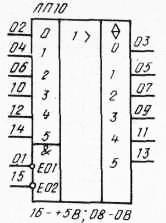 ЛП10
02 0 1 > ◇
0 03
04 1
06 2 1 05
10 3 2 07
12 4 3 09
14 5 4 11
& 5 13
01 EO1
15 EO2
16-+5В; 08-0В